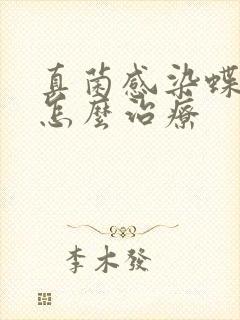 真菌感染蝶
怎麼治療
李木發